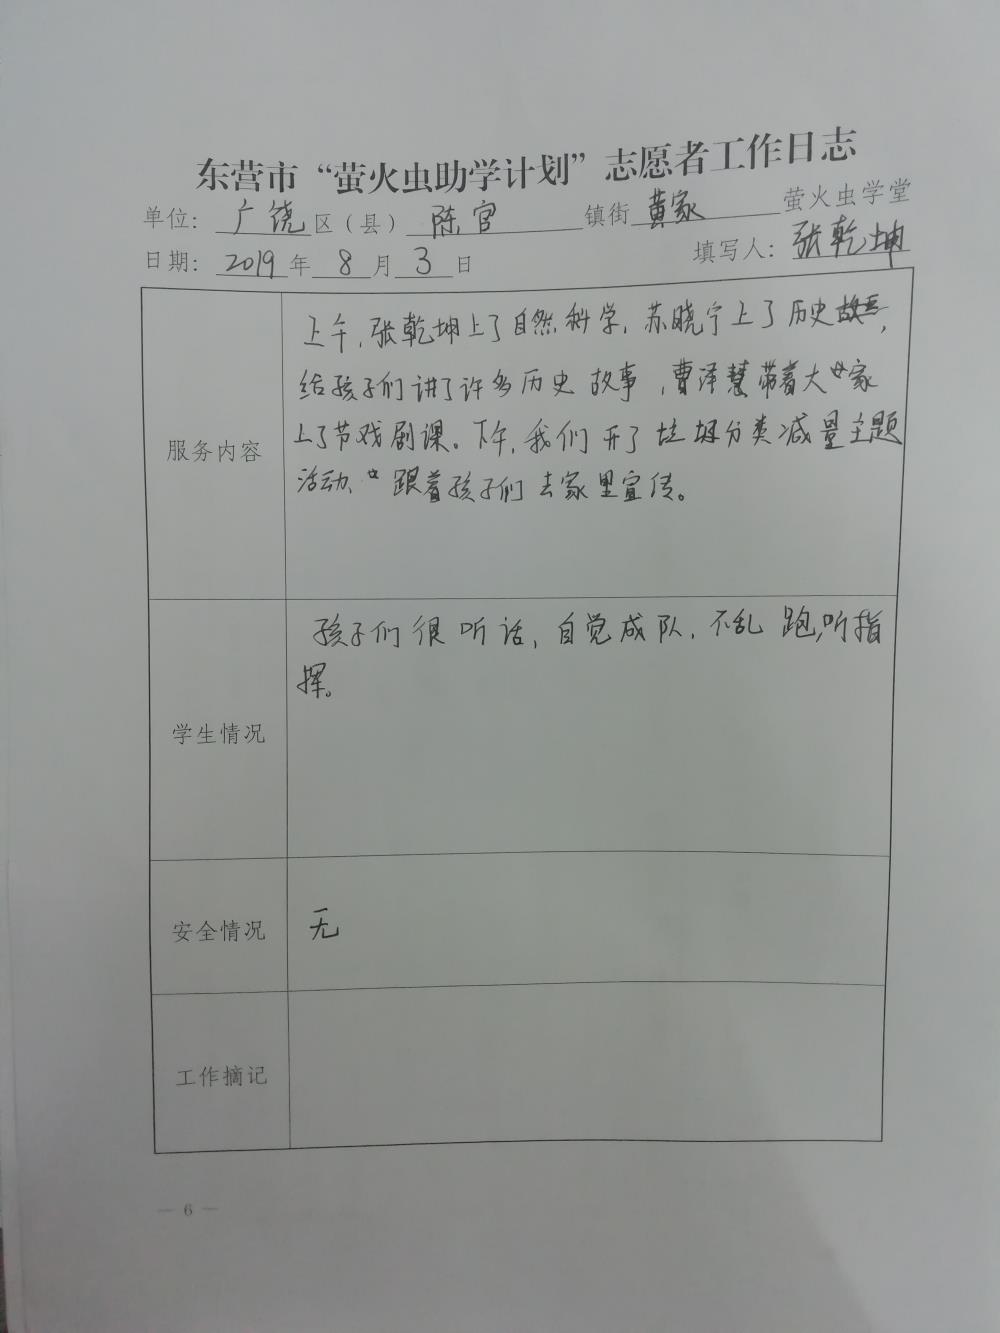 东营市“萤火虫助学计划”志愿者工作日志
单位：广饶区（县）陈官镇街黄家萤火虫学堂
日期：2019年8月3日 填写人：张乾坤
服务内容
上午，张乾坤上了自然科学，苏晓宁上了历史，
给孩子们讲了许多历史故事，曹泽慧带着大家
上了节戏剧课。下午，我们开了垃圾分类减量主题
活动、跟着孩子们去家里宣传。
学生情况
孩子们很听话，自觉成队，不乱跑，听指
挥。
安全情况
无
工作摘记
— 6 —